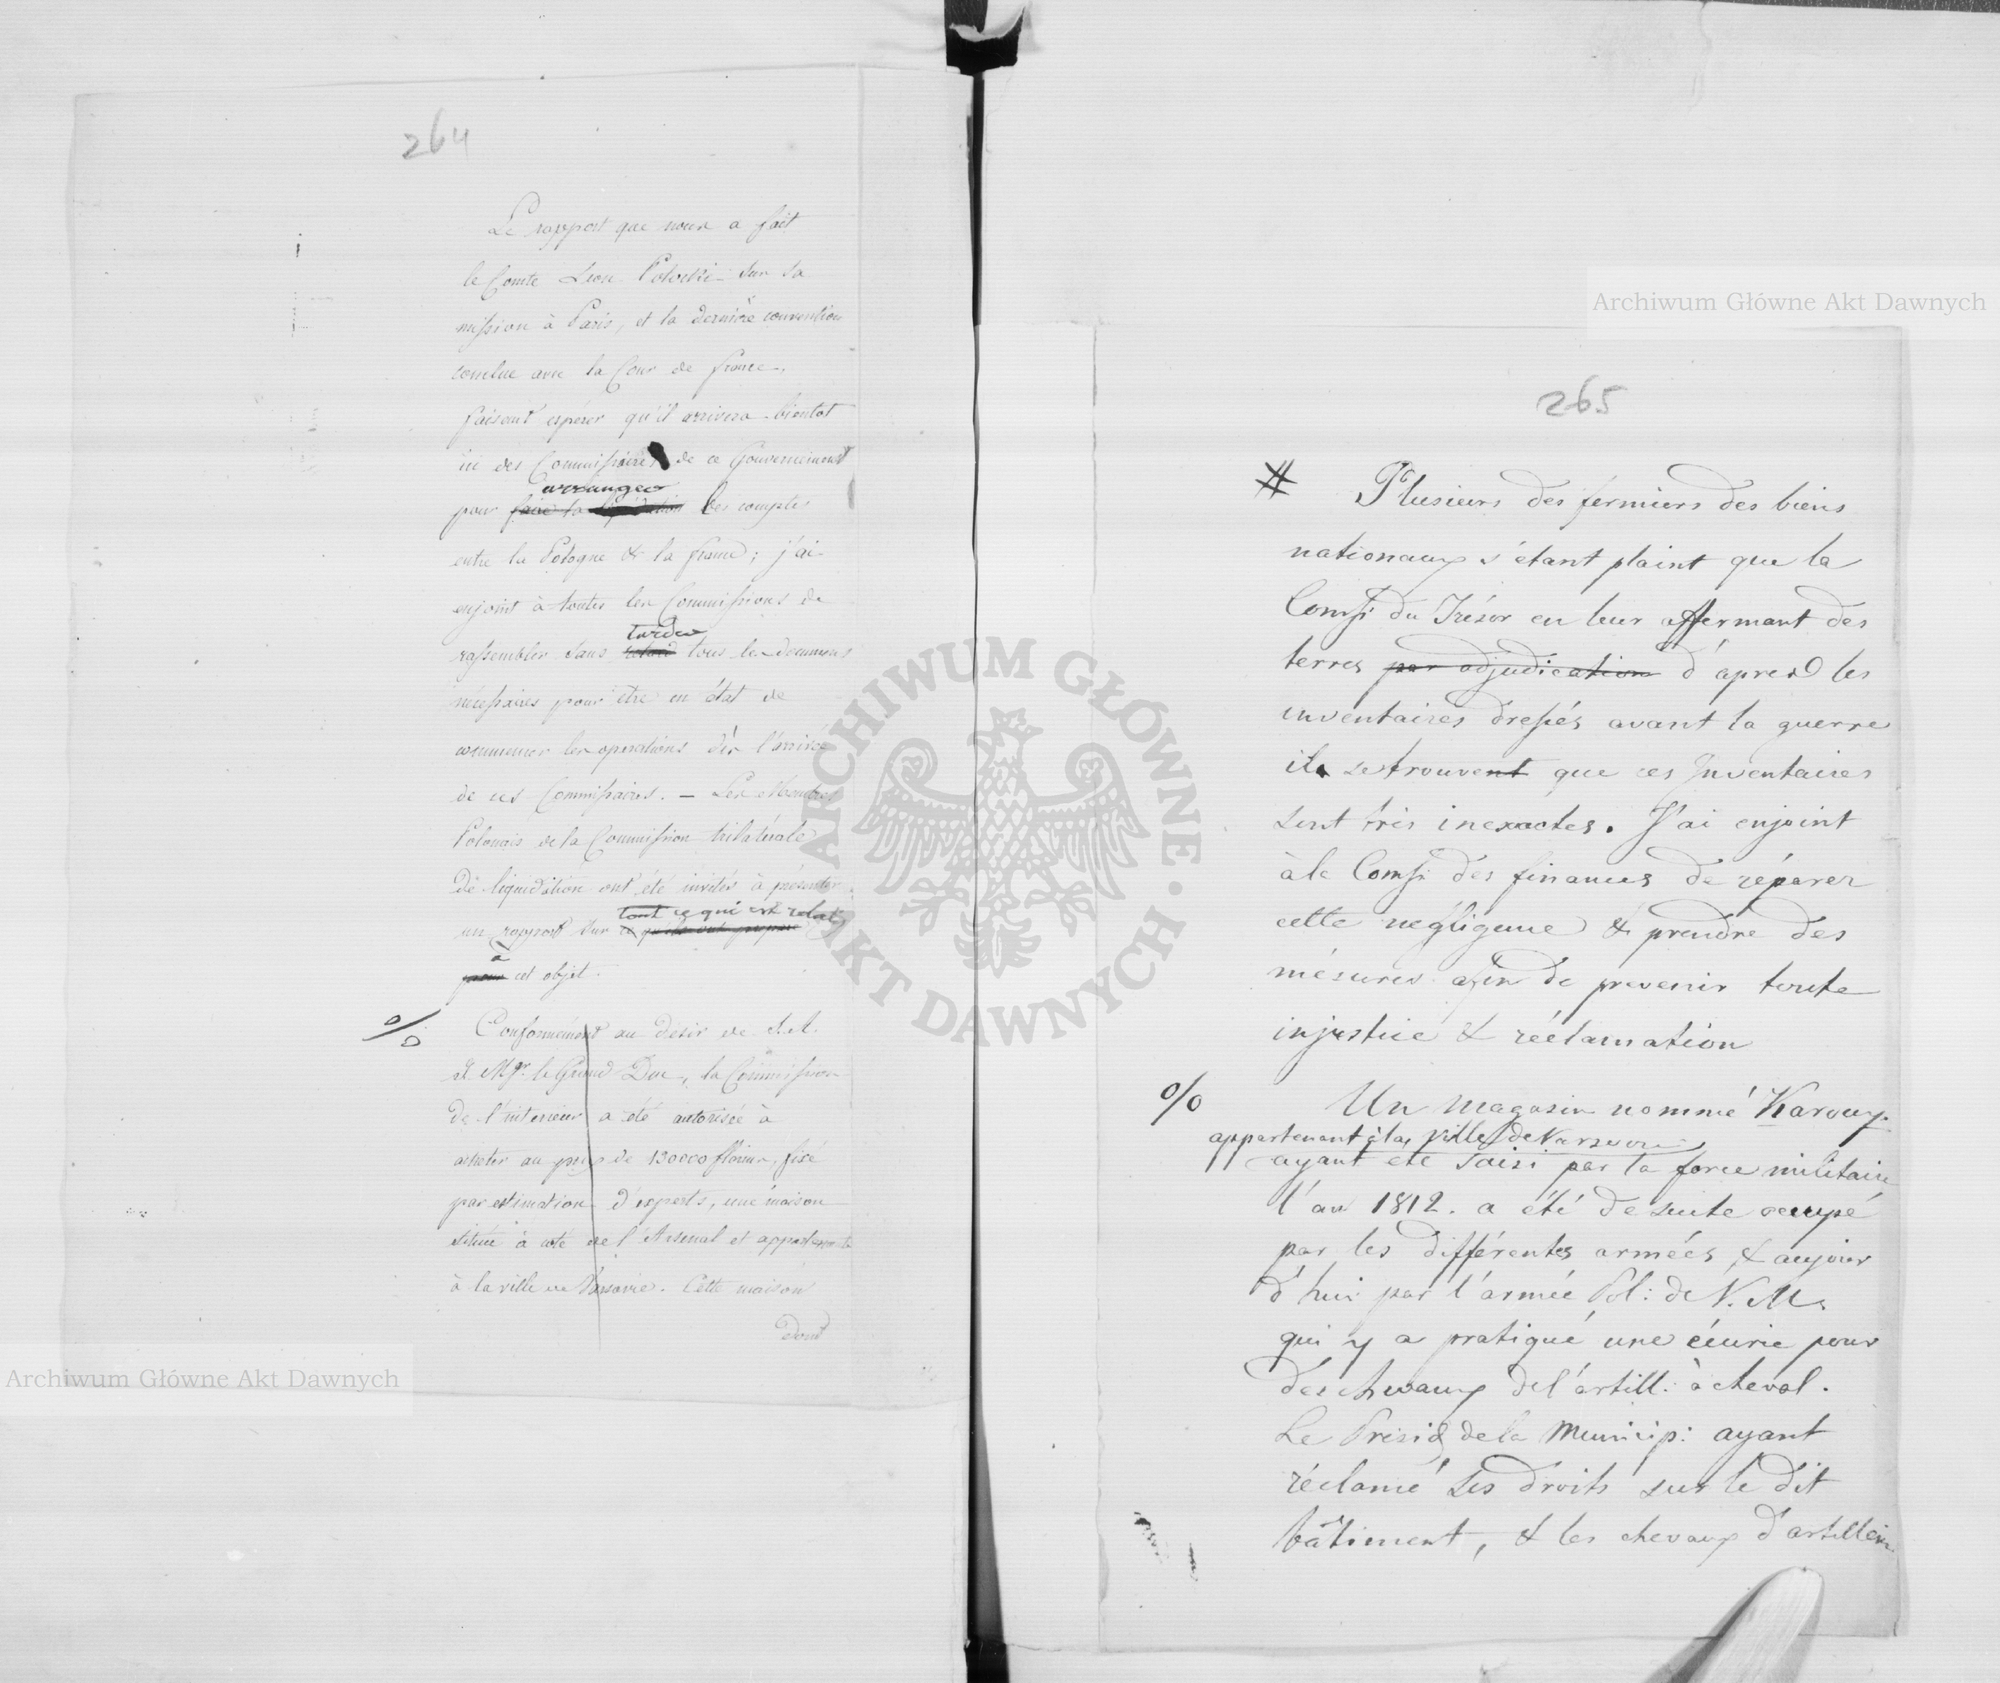 264
Le rapport que nous a fait
le Comte Leon Potocki sur sa
mission à Paris, et la dernière convention
conclue avec la Cour de France,
faisant espérer qu'il arrivera bientot
ici des Commissaires de ce Gouvernement
arranger
pour faire la liquidation les comptes
entre la Pologne & la France; j'ai
enjoint à toutes les Commissions de
tarder
rassembler sans retard tous les documens
nécessaires pour être en état de
commencer les operations dès l'arrivée
de ces Commissaires. — Les Membres
Polonais de la Commission trilatérale
De liquidation ont été invités à présenter
tout ce qui est relatif
un rapport sur ce qu'ils ont préparé
à
pour cet objet.
% Conformément au desir de S. A.
I. Mgr. le Grand Duc, la Commission
de l'interieur a été autorisée à
acheter au prix de 130000 florins, fixé
par estimation d'experts, une maison
située à coté de l'Arsenal et appartenante
à la ville de Varsovie. Cette maison
dont
265
# Plusieurs des fermiers des biens
nationaux s'étant plaint que la
Comssi du Trésor en leur affermant des
terres par adjudication d'après les
inventaires dressés avant la guerre
ils se trouvent que ces Inventaires
sont très inexactes. J'ai enjoint
à la Comssi des finances de réparer
cette négligence & prendre des
mésures afin de prevenir toute
injustice & réclamation
% Un magasin nommé Karowy
appartenant à la ville de Varsovie
ayant été saisi par la force militaire
l'an 1812. a été de suite occupé
par les différentes armées, & aujour
d'hui par l'armée Pol: de V. M.
qui y a pratiqué une écurie pour
des chevaux de l'artill: à cheval.
Le Présid de la Municip: ayant
réclamé ses droits sur le dit
bâtiment, & les chevaux d'artillerie
Archiwum Główne Akt Dawnych
Archiwum Główne Akt Dawnych
ARCHIWUM GŁÓWNE AKT DAWNYCH